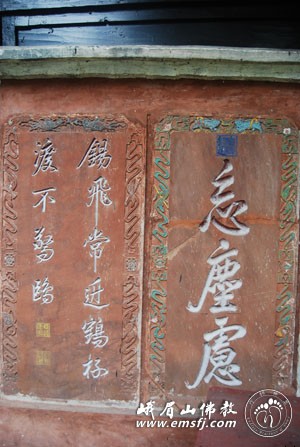 忘塵慮
錫飛常近鶴杯
渡不驚鷗
峨眉山佛教
www.emsfj.com